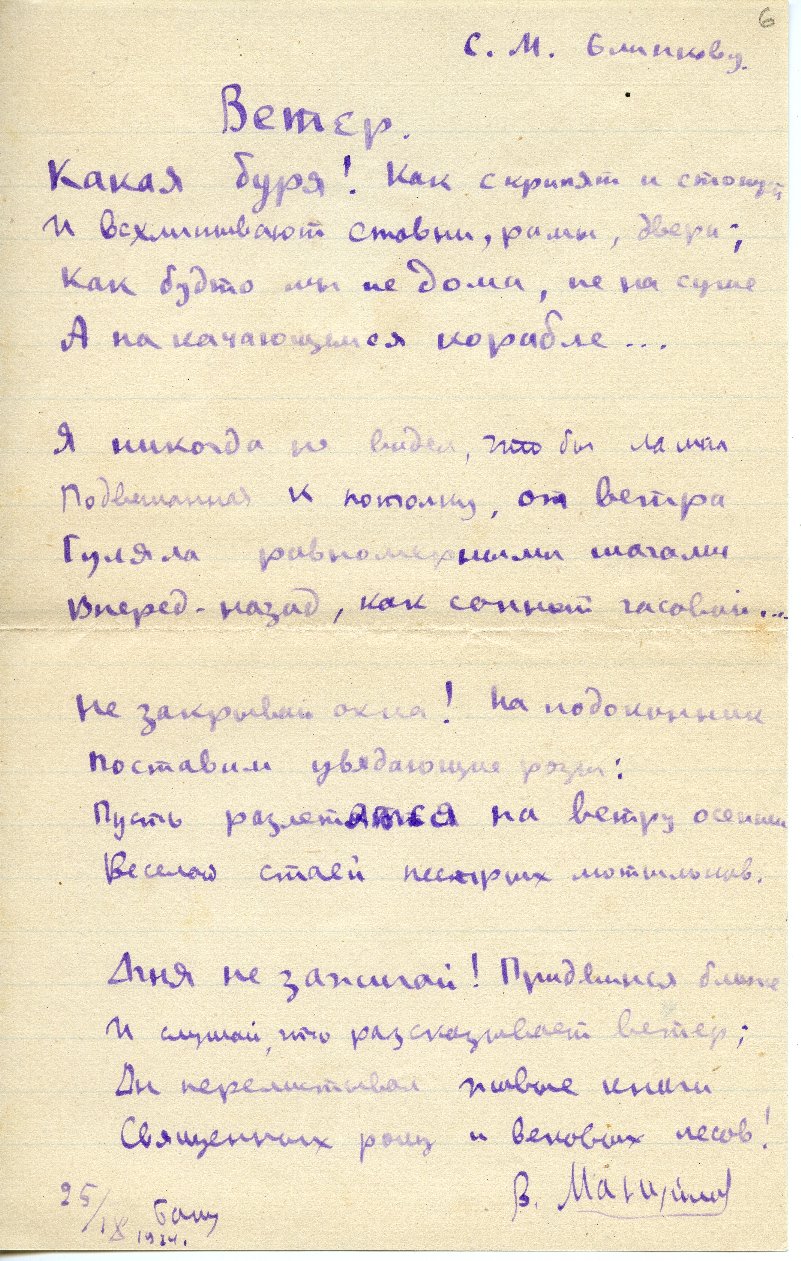 6
С. М.
Ветер.
Какая буря! Как скрипят и стонут
И всхлипывают ставни, рамы, двери;
Как будто мы не дома, не на суше
А на качающемся корабле...
Я никогда не видел, что бы лампа
Подвешанная к потолку, от ветра
Гуляла равномерными шагами
Вперед-назад, как сонный часовой...
Не закрывай окна! На подоконник
Поставим увядающие розы:
Пусть разлетятся на ветру осеннем
Веселой стаей пестрых мотыльков.
Огня не зажигай! Придвинься ближе
И слушай, что разсказывает ветер;
Он перелистывал живые книги
Священных рощ и вековых лесов!
В. Мануйлов
25/